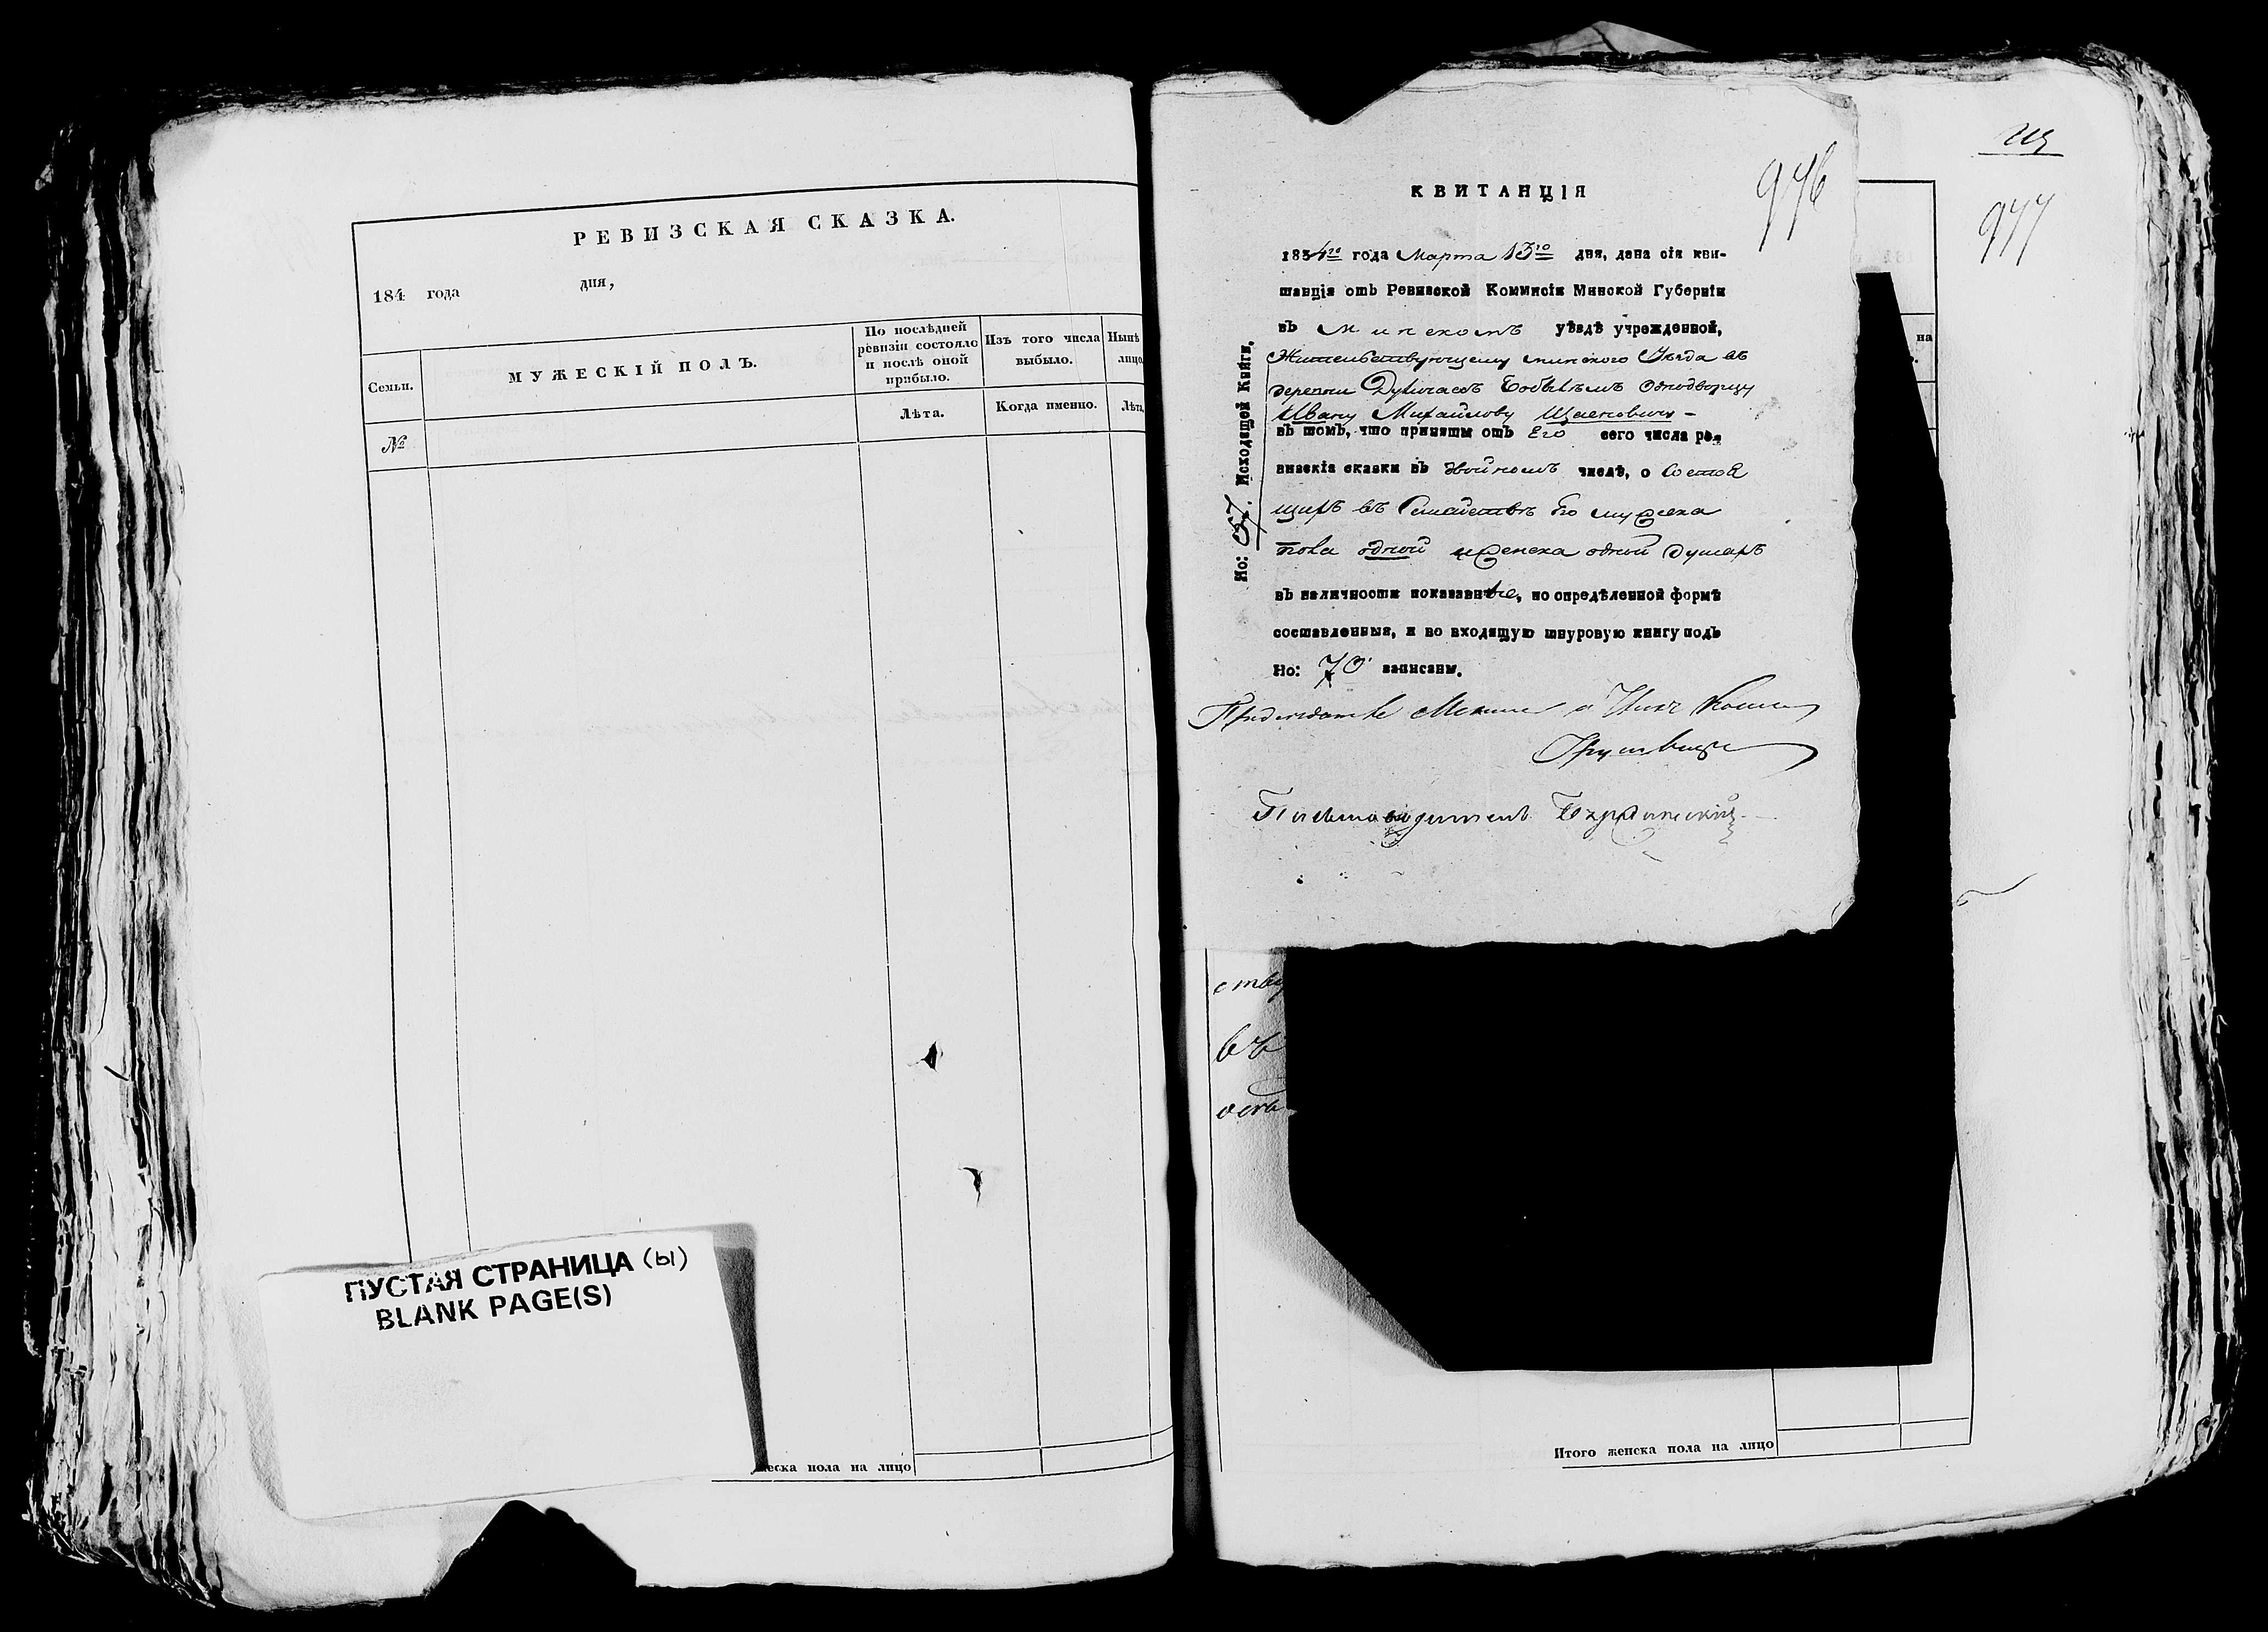 РЕВИЗСКАЯ СКАЗКА.
184 года дня,
Семьи.
МУЖЕСКІЙ ПОЛЪ.
По послѣдней ревизіи состояло и послѣ оной прибыло.
Изъ того числа выбыло.
Нынѣ лицо
Лѣта.
Когда именно.
Лѣта,
№
ПУСТАЯ СТРАНИЦА (ы)
BLANK PAGE(S)
еска пола на лицо
КВИТАНЦІЯ
976
1834го года Марта 13го дня, дана сія кви-
танція отъ Ревизской Коммисіи Минской Губерніи
въ Минскомъ уѣздѣ учрежденной,
Жительствующему минского Уѣзда въ
деревни Однодворцу
Ивану Михайлову
въ томъ, что приняты отъ Его сего числа ре-
визскія сказки въ двойномъ числѣ, о состоя
щихъ въ Семействѣ Его мужеска
пола одной и женска одной душахъ
въ наличности показанные, по опредѣленной формѣ
составленныя, и во входящую шнуровую книгу подъ
Но: 70 записаны.
Но: 57. Исходящей Книги.
Письмоводитель
977
на
ству
въ
Итого женска пола на лицо